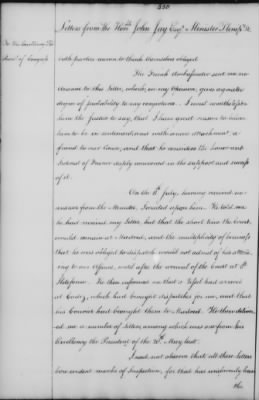 350
Letters from the Hon.ble John Jay Esq.r Minister Plenipo. &c
To His Excellency The
Presid.t of Congress
with parties assume to think themselves obliged.
The French Ambassador sent no
answer to this Letter, which, in my Opinion, gives a greater
degree of probability to my conjecture. I must nevertheless
have the Justice to say, that I have good reason to believe
him to be in sentiment and with warm attachment a
friend to our Cause, and that he considers the honor and
Interest of France deeply concerned in the support and success
of it.
On the 11th July, having received no
answer from the Minister, I waited upon him. He told me
he had received my Letter, but that the short time the Court
would remain at Madrid, and the multiplicity of business
that he was obliged to dispatch would not admit of his attend
ing to our affairs, until after the removal of the Court at St
Ildefonso. He then informed me that a Vessel had arrived
at Cadiz, which had brought dispatches for me, and that
his Courier had brought them to Madrid. He then deliver
ed me a number of Letters, among which was one from his
Excellency the President of the 28th May last.
I need not observe that all these Letters
bore evident marks of Inspection, for that has uniformly been
the